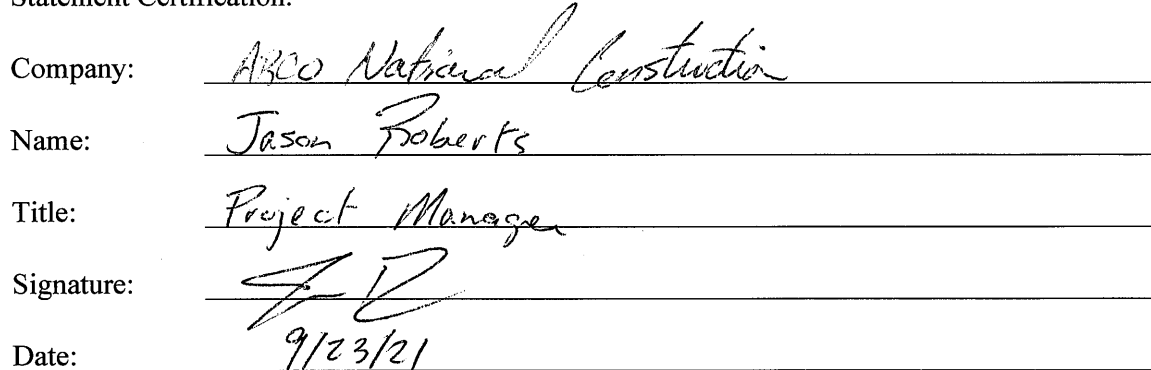 Statement Certification:
Company: ARCO National Construction
Name: Jason Roberts
Title: Project Manager
Signature:
Date: 9/23/21